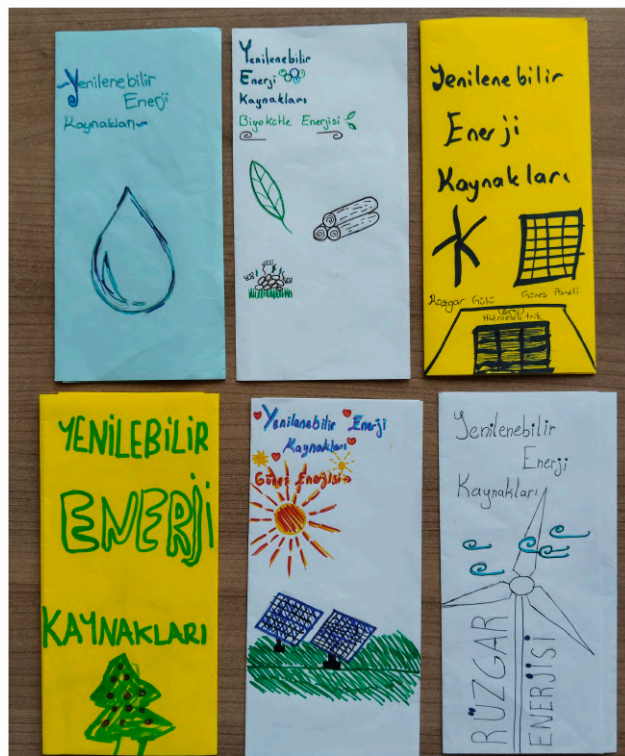 Yenilenebilir
Enerji
Kaynakları
Yenilenebilir
Enerji
Kaynakları
Biyokütle Enerjisi
Yenilenebilir
Enerji
Kaynakları
Rüzgar Gülü
Güneş Paneli
Hidroelektrik
YENİLEBİLİR
ENERJİ
KAYNAKLARI
Yenilenebilir Enerji
Kaynakları
Güneş Enerjisi
Yenilenebilir
Enerji
Kaynakları
RÜZGAR
ENERJİSİ